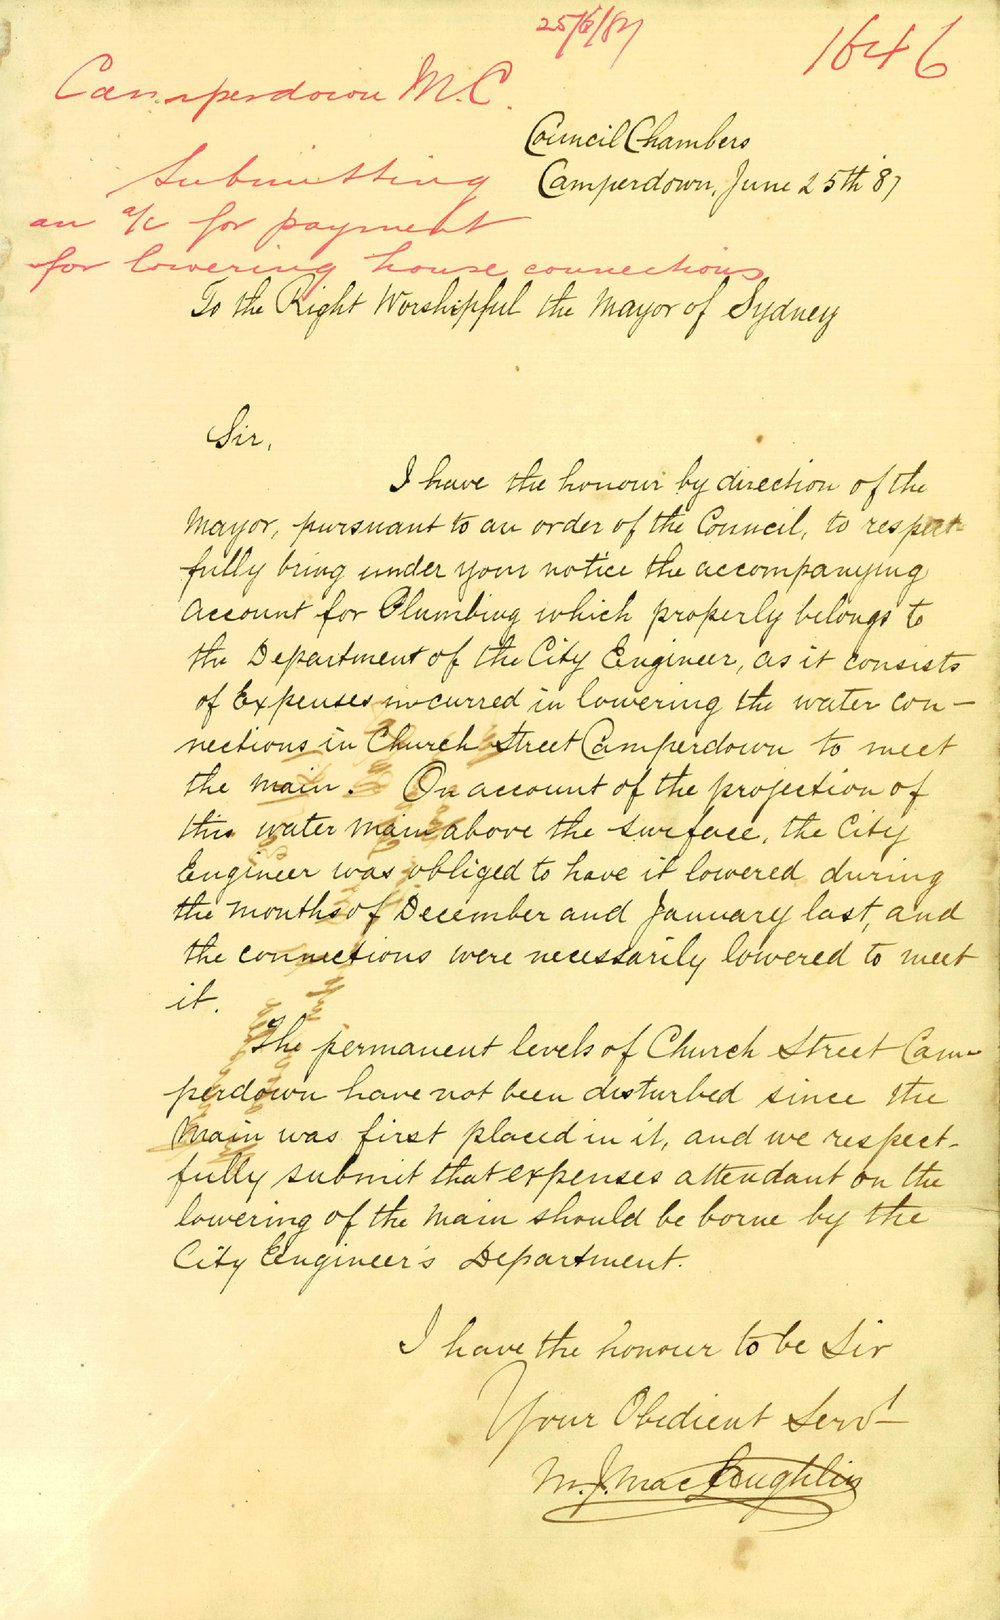 25/6/87
1646
Camperdown M.C.
Submitting
an a/c for payment
for lowering house connections
Council Chambers
Camperdown, June 25th 87
To the Right Worshipful the Mayor of Sydney
Sir,
I have the honour by direction of the
Mayor, pursuant to an order of the Council, to respect-
fully bring under your notice the accompanying
account for Plumbing which properly belongs to
the Department of the City Engineer, as it consists
of Expenses incurred in lowering the water con-
nections in Church Street Camperdown to meet
the main. On account of the projection of
this water main above the surface, the City
Engineer was obliged to have it lowered during
the months of December and January last, and
the connections were necessarily lowered to meet
it.
The permanent levels of Church Street Cam-
perdown have not been disturbed since the
Main was first placed in it, and we respect-
fully submit that expenses attendant on the
lowering of the Main should be borne by the
City Engineer's Department.
I have the honour to be Sir
Your Obedient Servt
M. J. MacLoughlin